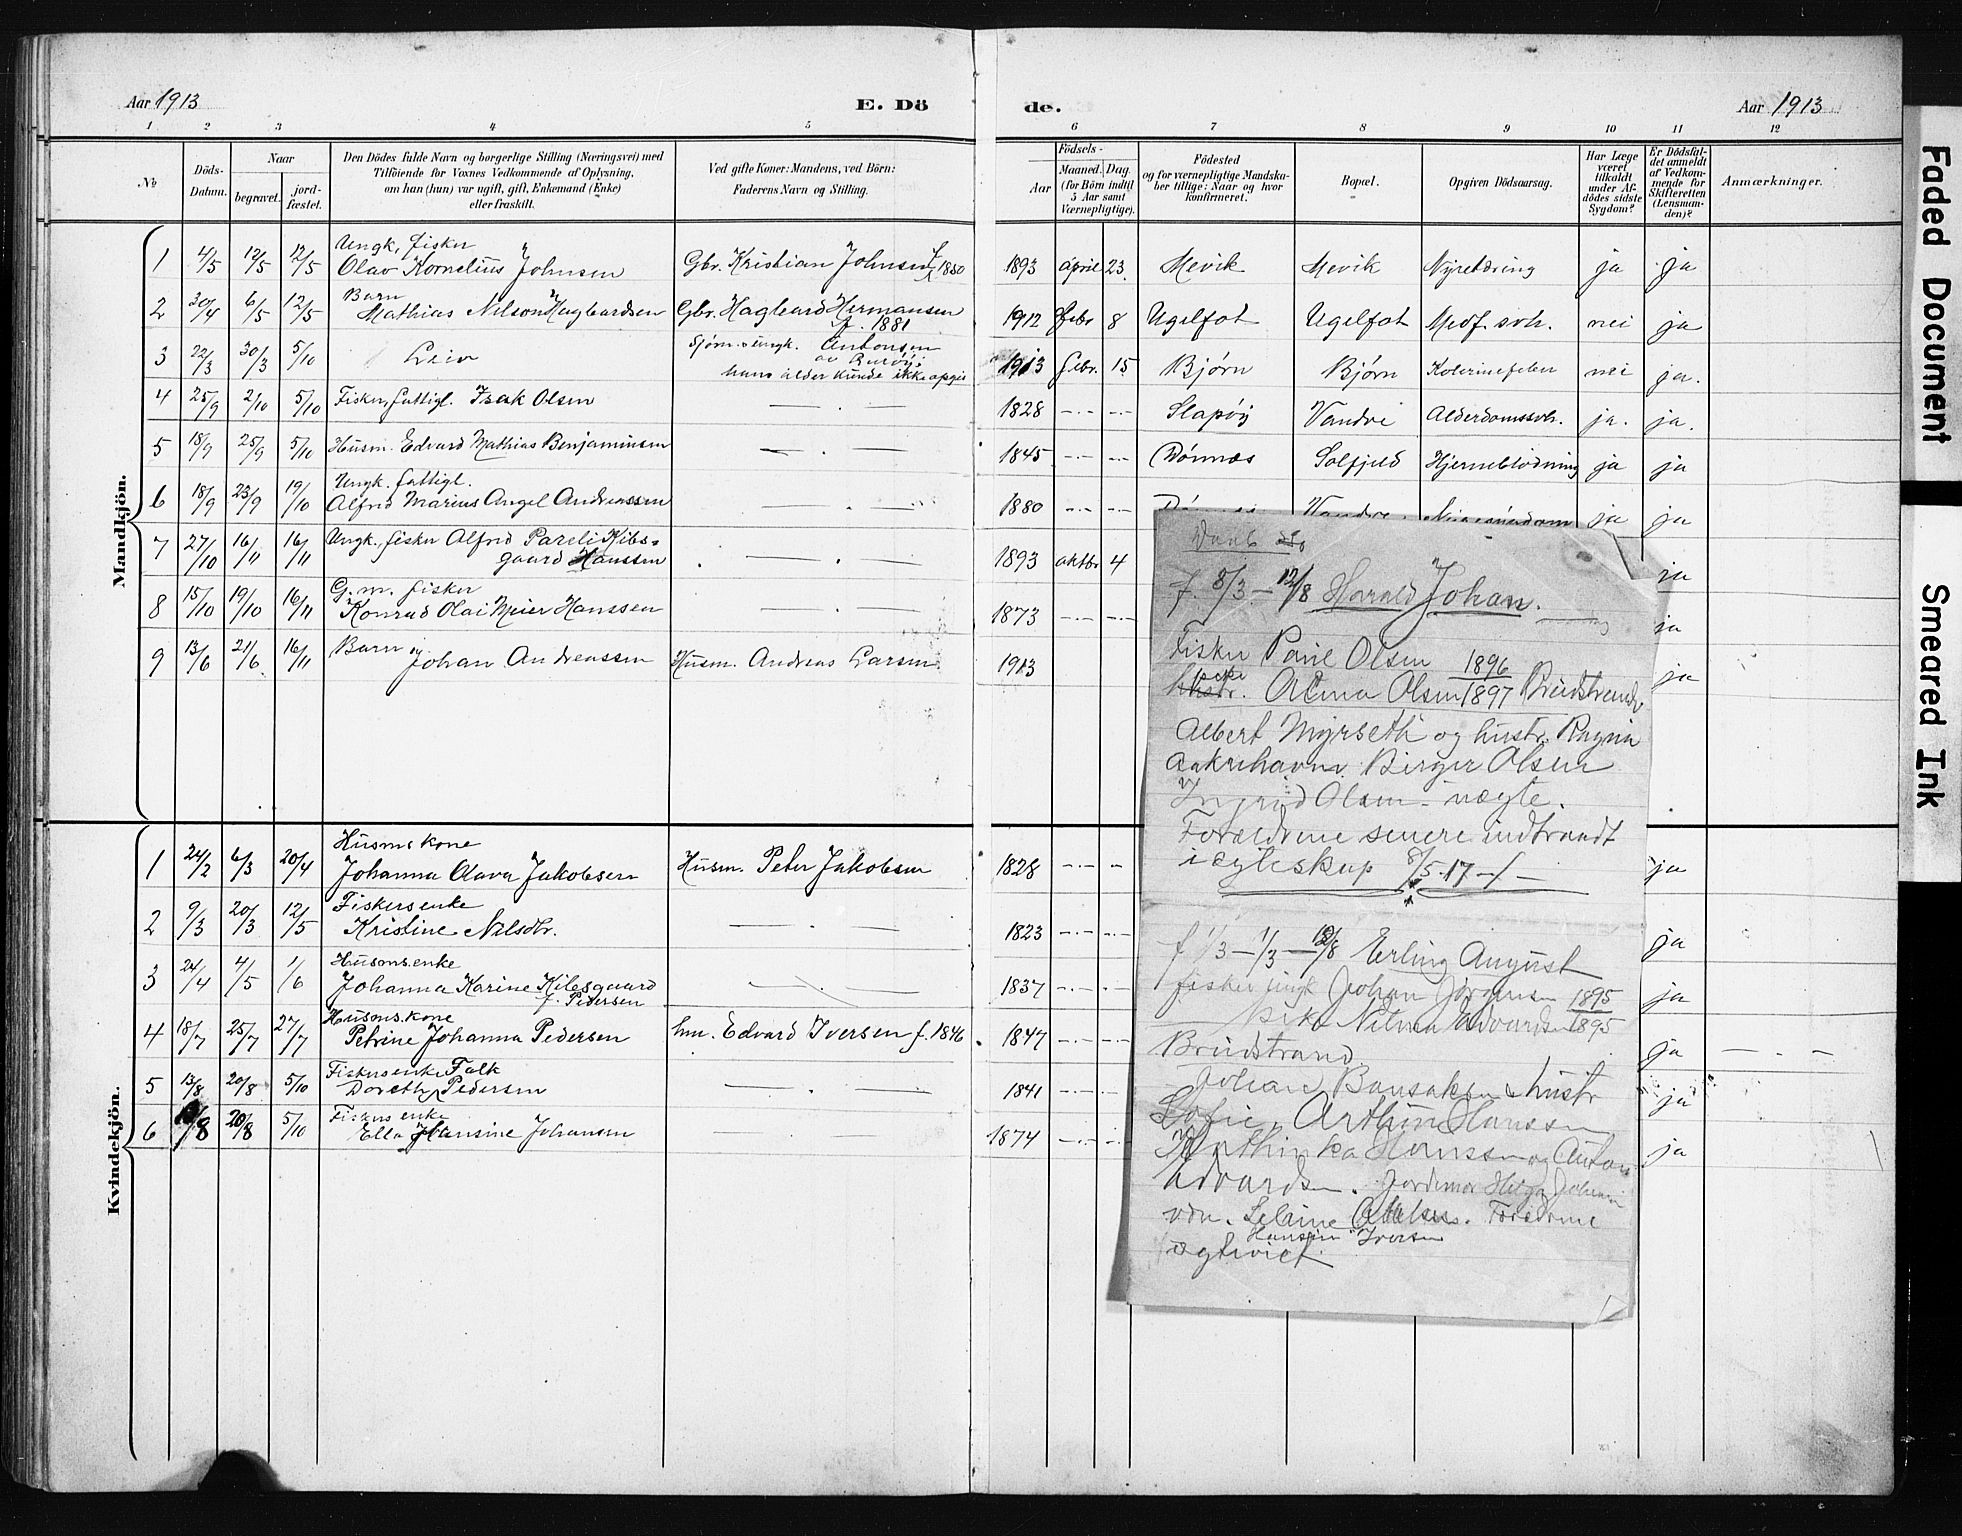 Aar 1913 E. Dö de. Aar 1913
1 2 3 4 5 6 7 8 9 10 11 12
No
Döds-Datum.
Naar begravet. jordfæstet.
Den Dödes fulde Navn og borgerlige Stilling (Næringsvei) med
Tilföiende for Voxnes Vedkommende af Oplysning,
om han (hun) var ugift, gift, Enkemand (Enke)
eller fraskilt.
Ved gifte Koner: Mandens, ved Börn:
Faderens Navn og Stilling.
Födsels-
Aar Maaned. Dag.
(for Börn indtil
5 Aar samt
Værnepligtige).
Födested
og for værnepligtige Mandska-
ber tillige: Naar og hvor
konfirmeret.
Bopæl.
Opgiven Dödsaarsag.
Har Læge
været
tilkaldt
under Af-
dödes sidste
Sygdom?
Er Dödsfal-
det anmeldt
af Vedkom-
mende for
Skifteretten
(Lensman-
den)?
Anmærkninger.
Mandkjön.
Ungk. fisker
1 4/5 12/5 12/5 Olav Kornelius Johnsen Gbr. Kristian Johnsen f. 1850 1893 april 23 Mevik Mevik Nyretæring ja ja
Barn
2 30/4 6/5 12/5 Mathias Nilson Hagbardsen Gbr. Hagbard Hermansen f. 1881 1912 febr 8 Ugelfot Ugelfot Medf. svh. nei ja
3 22/3 30/3 5/10 Leiv Sjöm. ungk. Antonsen
hans alder kunde ikke opgis 1913 febr. 15 Bjørn Bjørn nei ja.
4 25/9 2/10 5/10 Fisker, fattigl. Isak Olsen — . — 1828 — . — — . — Slapøy Vandve Alderdomssvh. ja. ja.
5 18/9 25/9 5/10 Husm. Edvard Mathias Benjaminsen — . — 1845 — . — — . — Dønnæs Solfjeld Hjerneblödning ja ja
Ungk. fattigl.
6 18/9 23/9 19/10 Alfred Marius Angel Andreassen — . — 1880 — . — — . — Vandve ja ja
7 27/10 16/11 16/11 Ungk. fisker Alfred Pareli Kibs-
gaard Hanssen . — . — 1893 oktbr 4 ja
G. m. fisker
8 15/10 19/10 16/11 Konrad Olai Meier Hanssen — . — 1873 — . — — . — ja
9 13/6 21/6 16/11 Barn Johan Andreassen Husm. Andreas Larsen 1913 ja
Kvindekjön.
Husmskone
1 24/2 6/3 20/4 Johanna Olava Jakobsen Husm. Peter Jakobsen 1828 — . — — ja
Fiskersenke
2 9/3 20/3 12/5 Kristine Nilsdtr. — . — 1823 — . — — . — ja
Husmsenke
3 24/4 4/5 1/6 Johanna Karine Kibsgaard
f. Pedersen — . — 1837 — . — — . — ja
Husmskone
4 18/7 25/7 27/7 Petrine Johanna Pedersen hm. Edvard Iversen f. 1846 1847 — . — — . — ja — . —
Fiskersenke Falk
5 13/8 20/8 5/10 Doreth Pedersen — . — 1841 — . — — . — ja
Fiskersenke
6 20/8 5/10 Ella Hansine Johansen — — 1874 — . — — . — ja
Daab
f. 8/3 — 12/8 Harald Johan.
Fisker Paul Olsen 1896
pike Alma Olsen 1897 Breidstrand
Albert Myrseth og hustr. Ragna
Aakrehavn. Birger Olsen
Ingrid Olsen — uægte.
Forældrene senere indtraadt
i ægteskap 8/5.17 —
f 1/3 — 1/3 — 12/8 Erling August
fisker ungk Johan Jörgensen 1895
pike Edvardsen 1895
Breidstrand
Johan Bansaksen hustr
Sofie, Arthur Hanssen
Kathinka Hanssen og Anton
Edvardsen. Jordemor Helga Johansen
Forældrene
Hansine Iversen
ægteviet.
Faded Document
Smeared Ink